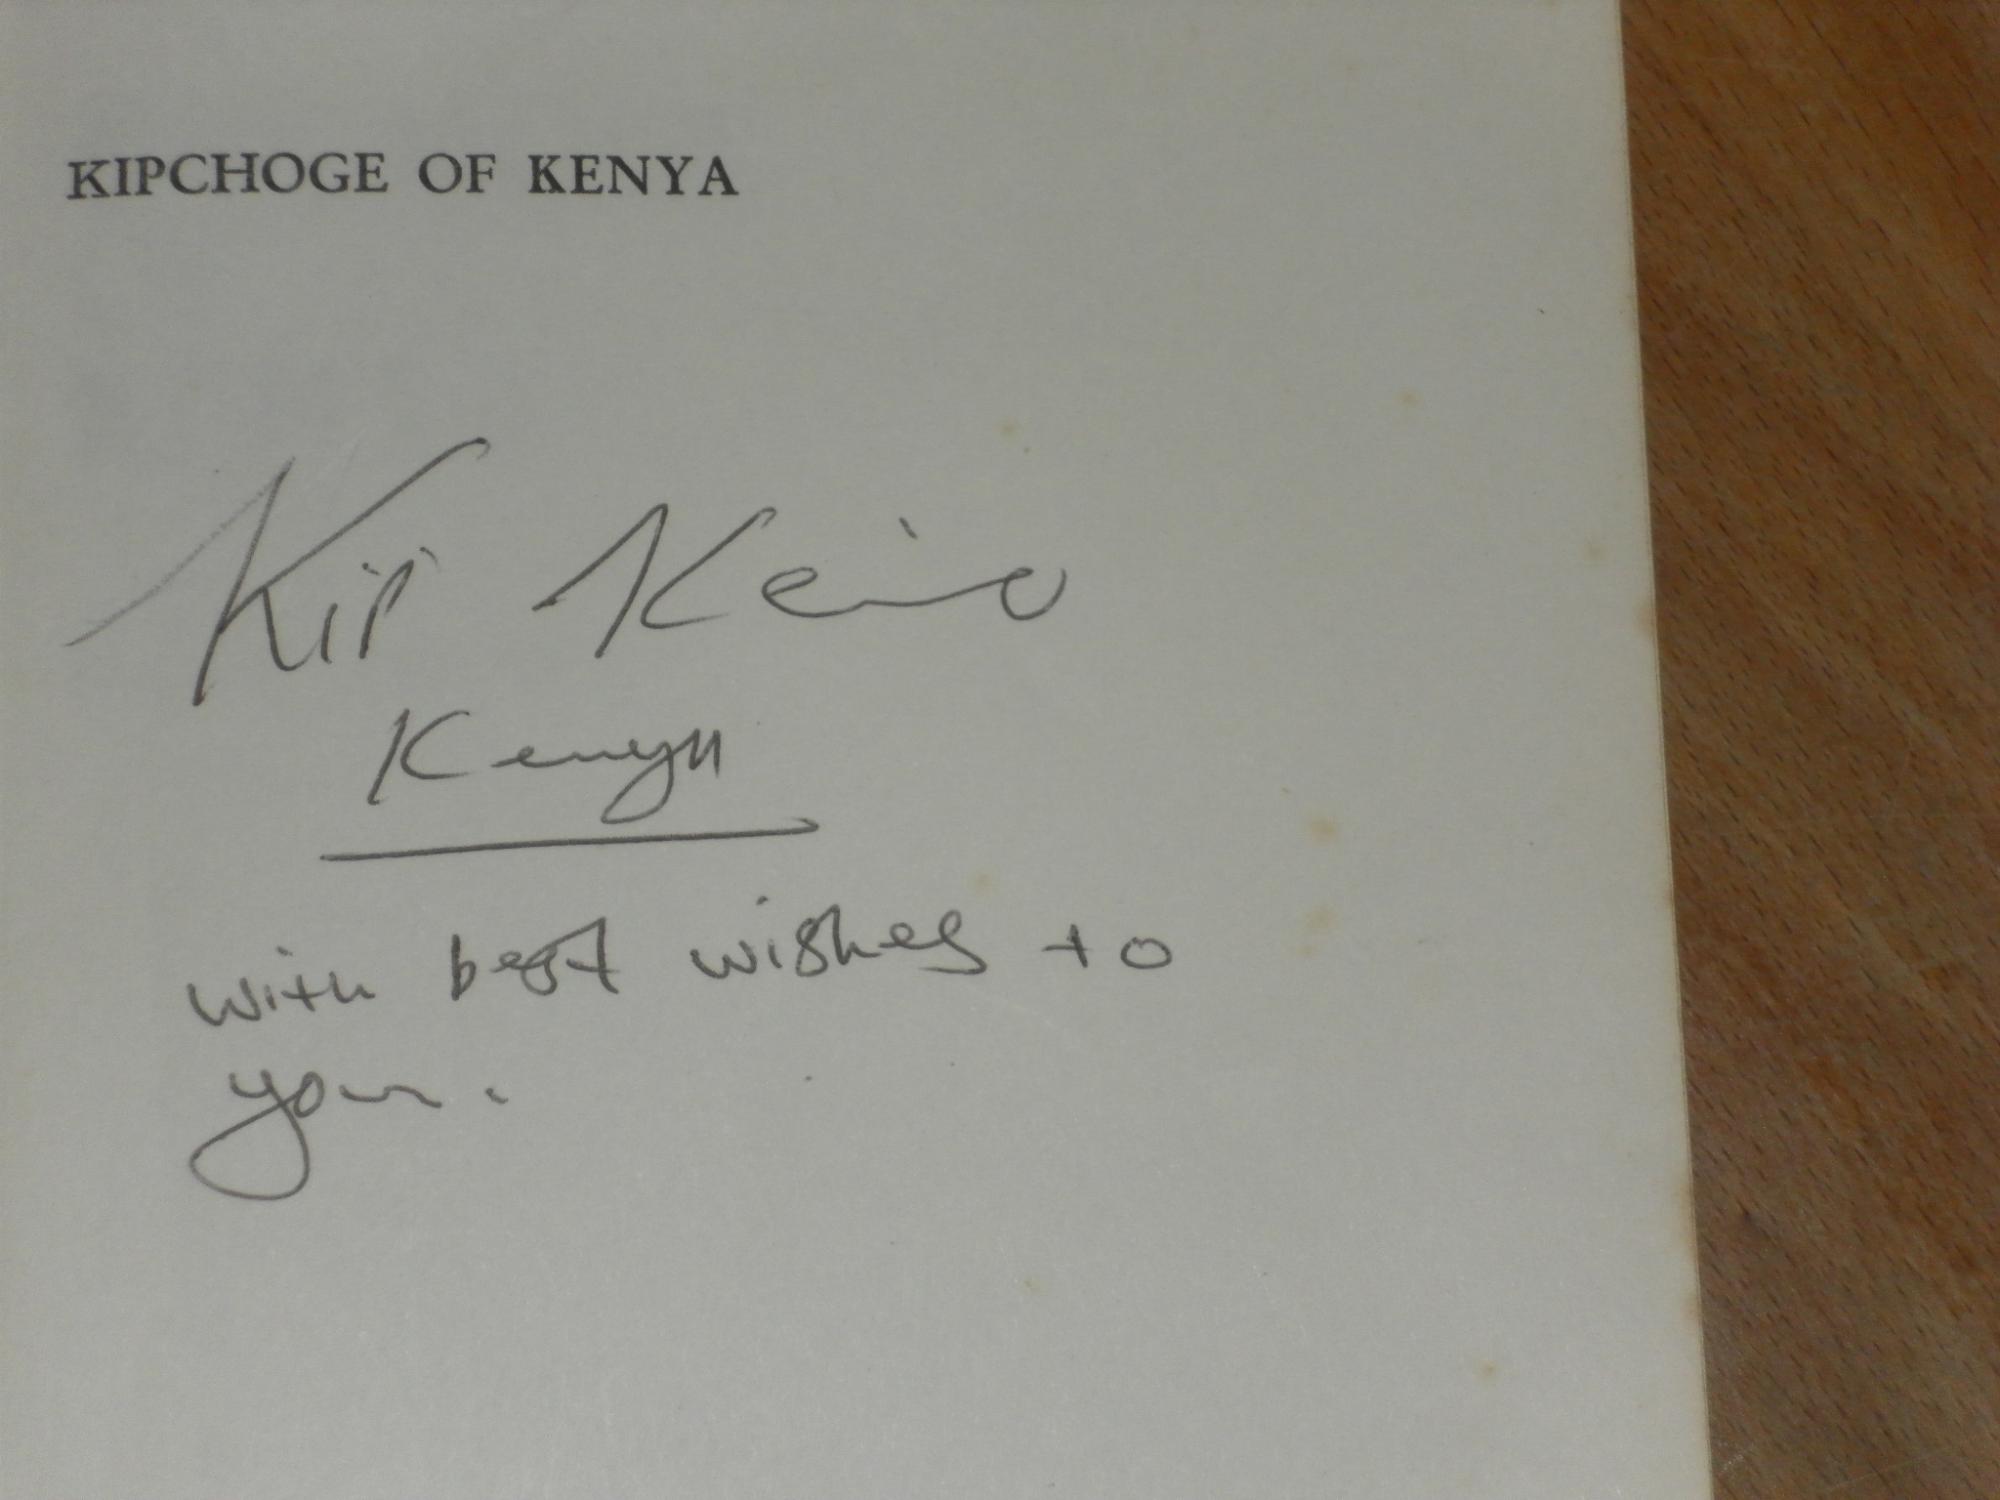 KIPCHOGE OF KENYA
Kip Keino
Kenya
with best wishes to
you.